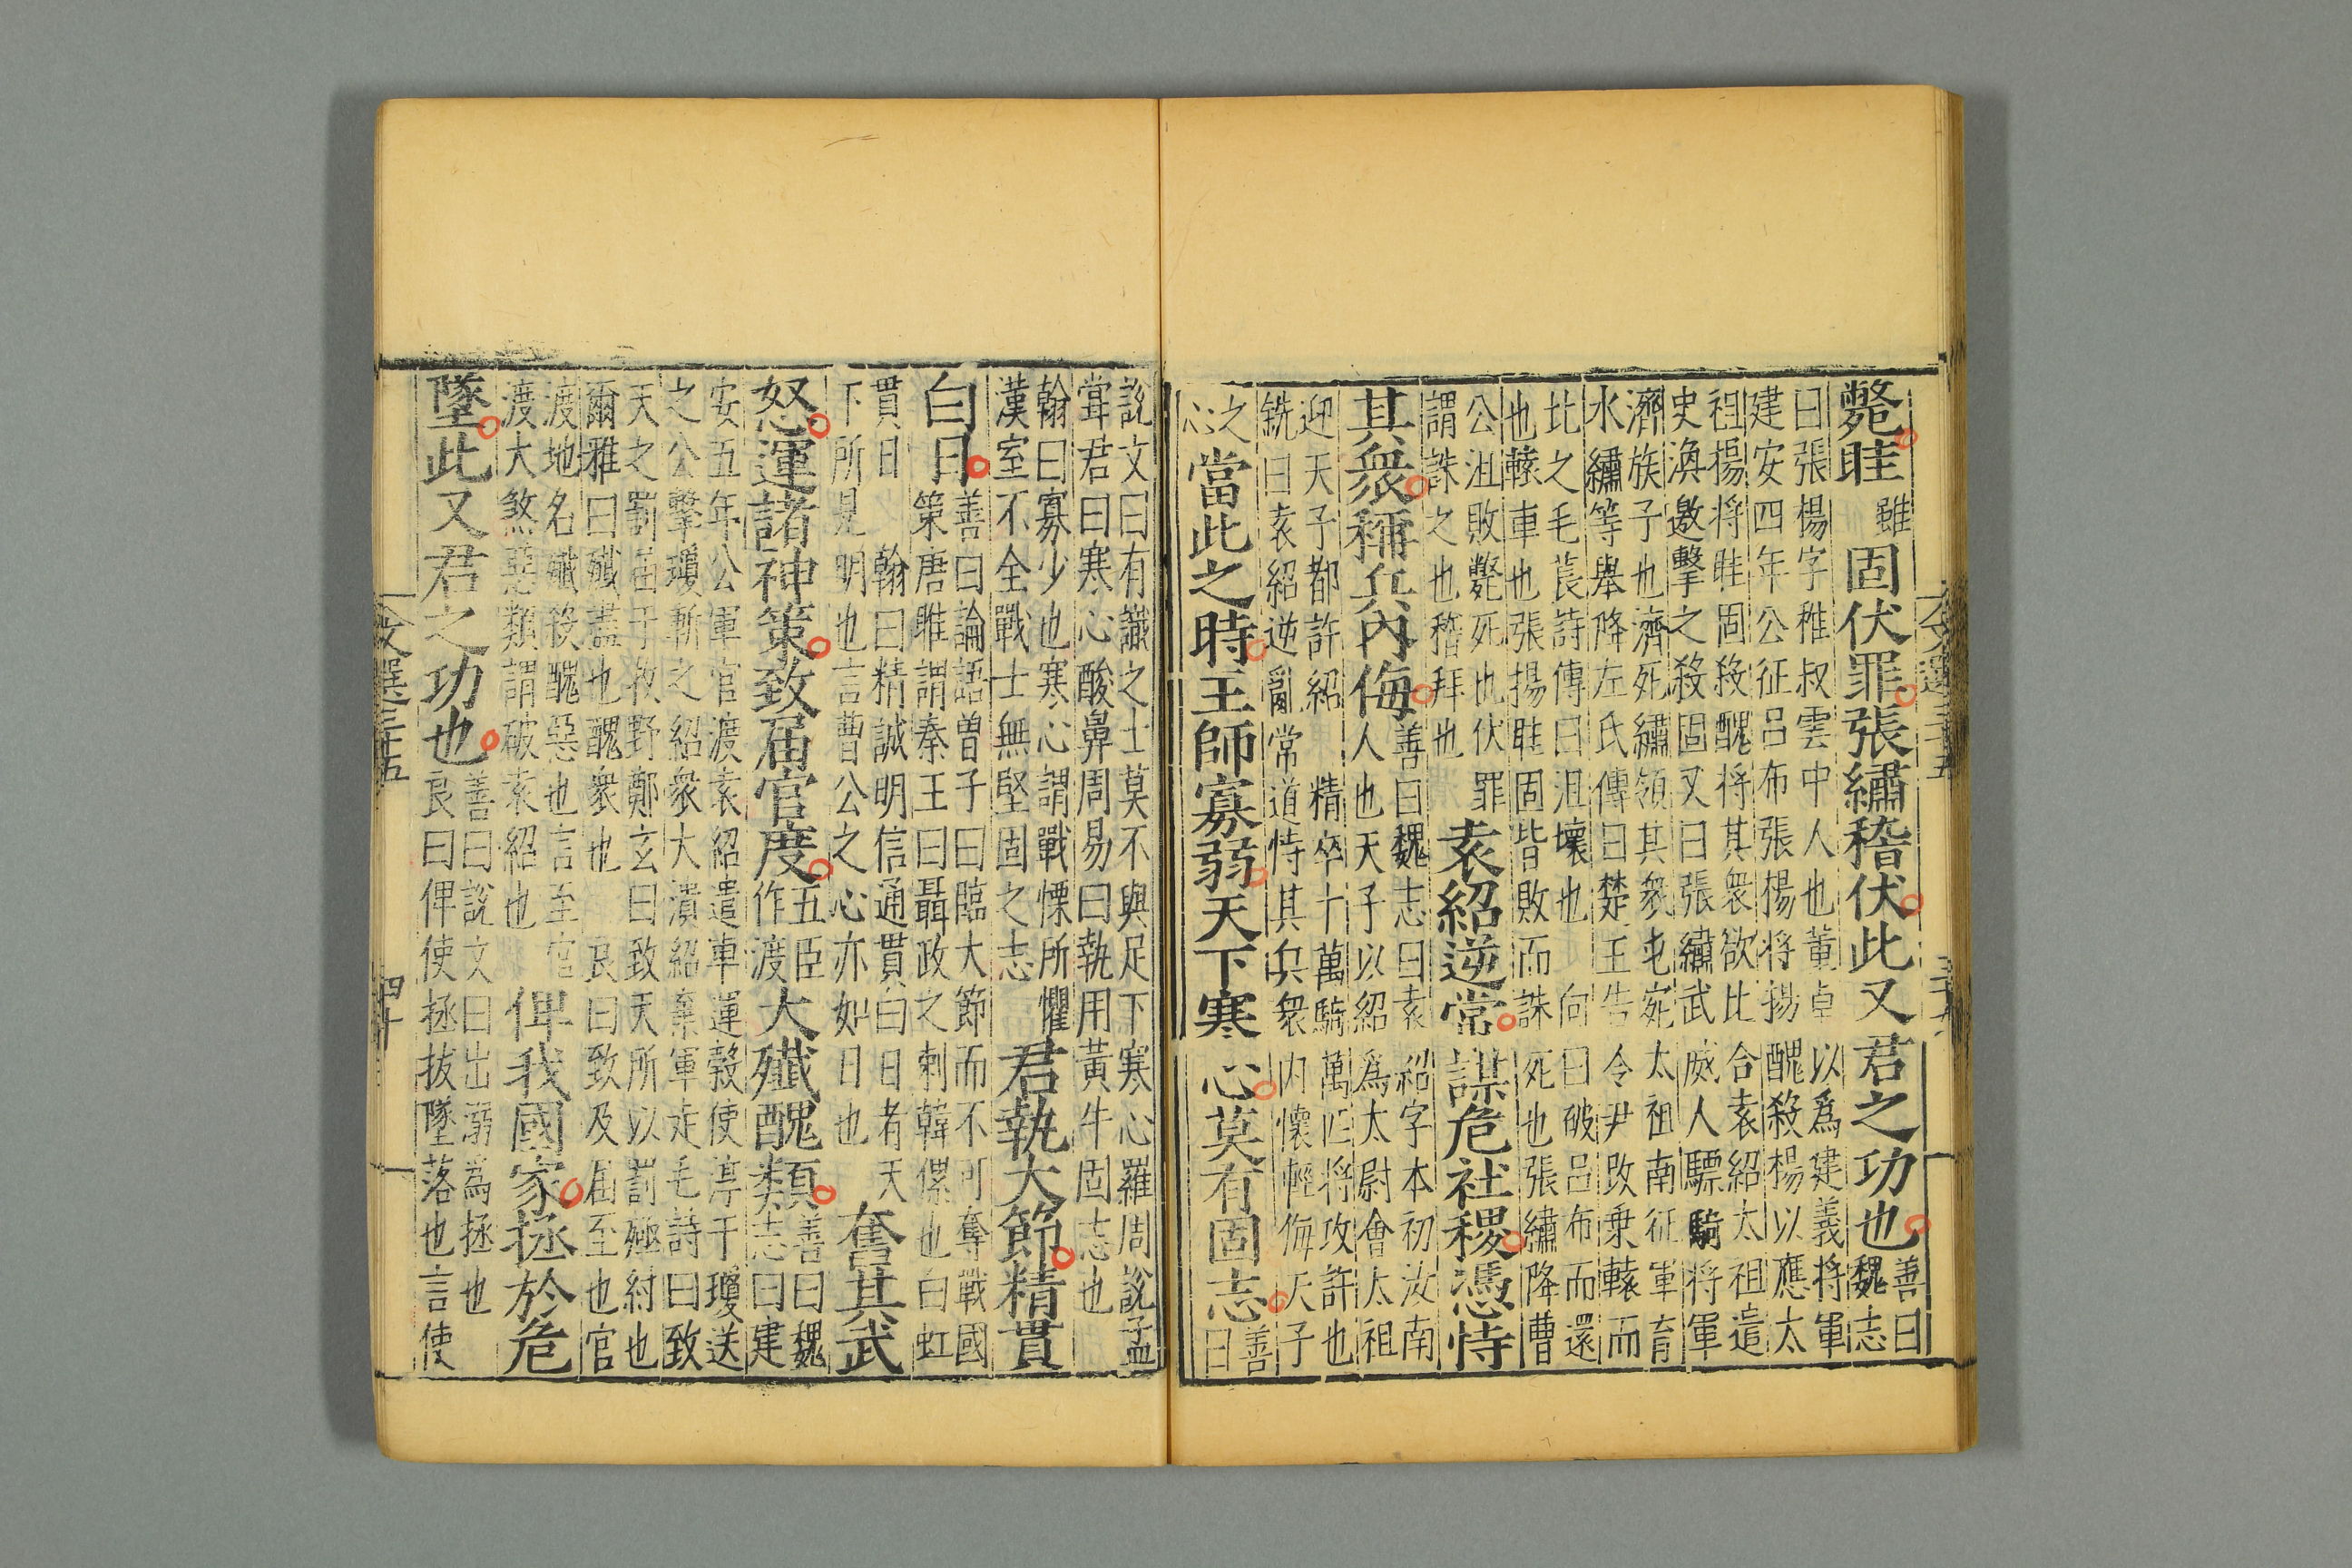 斃眭雖固伏罪張繡稽伏此又君之功也善曰
魏志
曰張楊字稚叔雲中人也董卓以爲建義將軍
建安四年公征呂布張揚將揚醜殺楊以應太
祖揚將眭固殺醜將其衆欲比合袁紹太祖遣
史渙邀擊之殺固又曰張繡武威人驃騎將軍
濟族子也濟死繡領其衆屯宛太祖南征軍育
水繡等舉降左氏傳曰楚王告令尹改乗轅而
北之毛萇詩傳曰沮壞也向曰破呂布而還
也轅車也張揚眭固皆敗而誅死也張繡降曹
公沮敗斃死也伏罪
謂誅之也稽拜也
袁紹逆常謀危社稷憑恃
其衆稱兵內侮
善曰魏志曰袁紹字本初汝南
人也天子以紹爲太尉會太祖
迎天子都許紹精卒十萬騎萬匹将攻許也
銑曰袁紹逆亂常道恃其兵衆内懷輕侮天子
之
心
當此之時王師寡弱天下寒心莫有固志
善
曰
說文曰有讖之士莫不與足下寒心羅周說孟
嘗君曰寒心酸鼻周易曰執用黃牛固志也
翰曰寡少也寒心謂戰慄所懼
漢室不全戰士無堅固之志
君執大節精貫
白日
善曰論語曽子曰臨大節而不可奪戰國
策唐雎謂秦王曰聶政之刺韓傫也白虹
貫日翰曰精誠明信通貫白日者天
下所見明也言曹公之心亦如日也
奮其武
怒運諸神策致屆官度
五臣
作渡
大殲醜類
善曰魏
志曰建
安五年公軍官渡袁紹遣車運榖使淳于瓊送
之公擊瓊斬之紹衆大潰紹棄軍走毛詩曰致
天之罰屆于牧野鄭玄曰致天所以罰殛紂也
爾雅曰殲盡也醜衆也良曰致及屆至也官
渡地名殲殺醜惡也言至官
渡大煞惡類謂破袁紹也
俾我國家拯於危
墜此又君之功也
善曰說文曰出溺為拯也
良曰俾使拯拔墜落也言使
文選三十五
四十